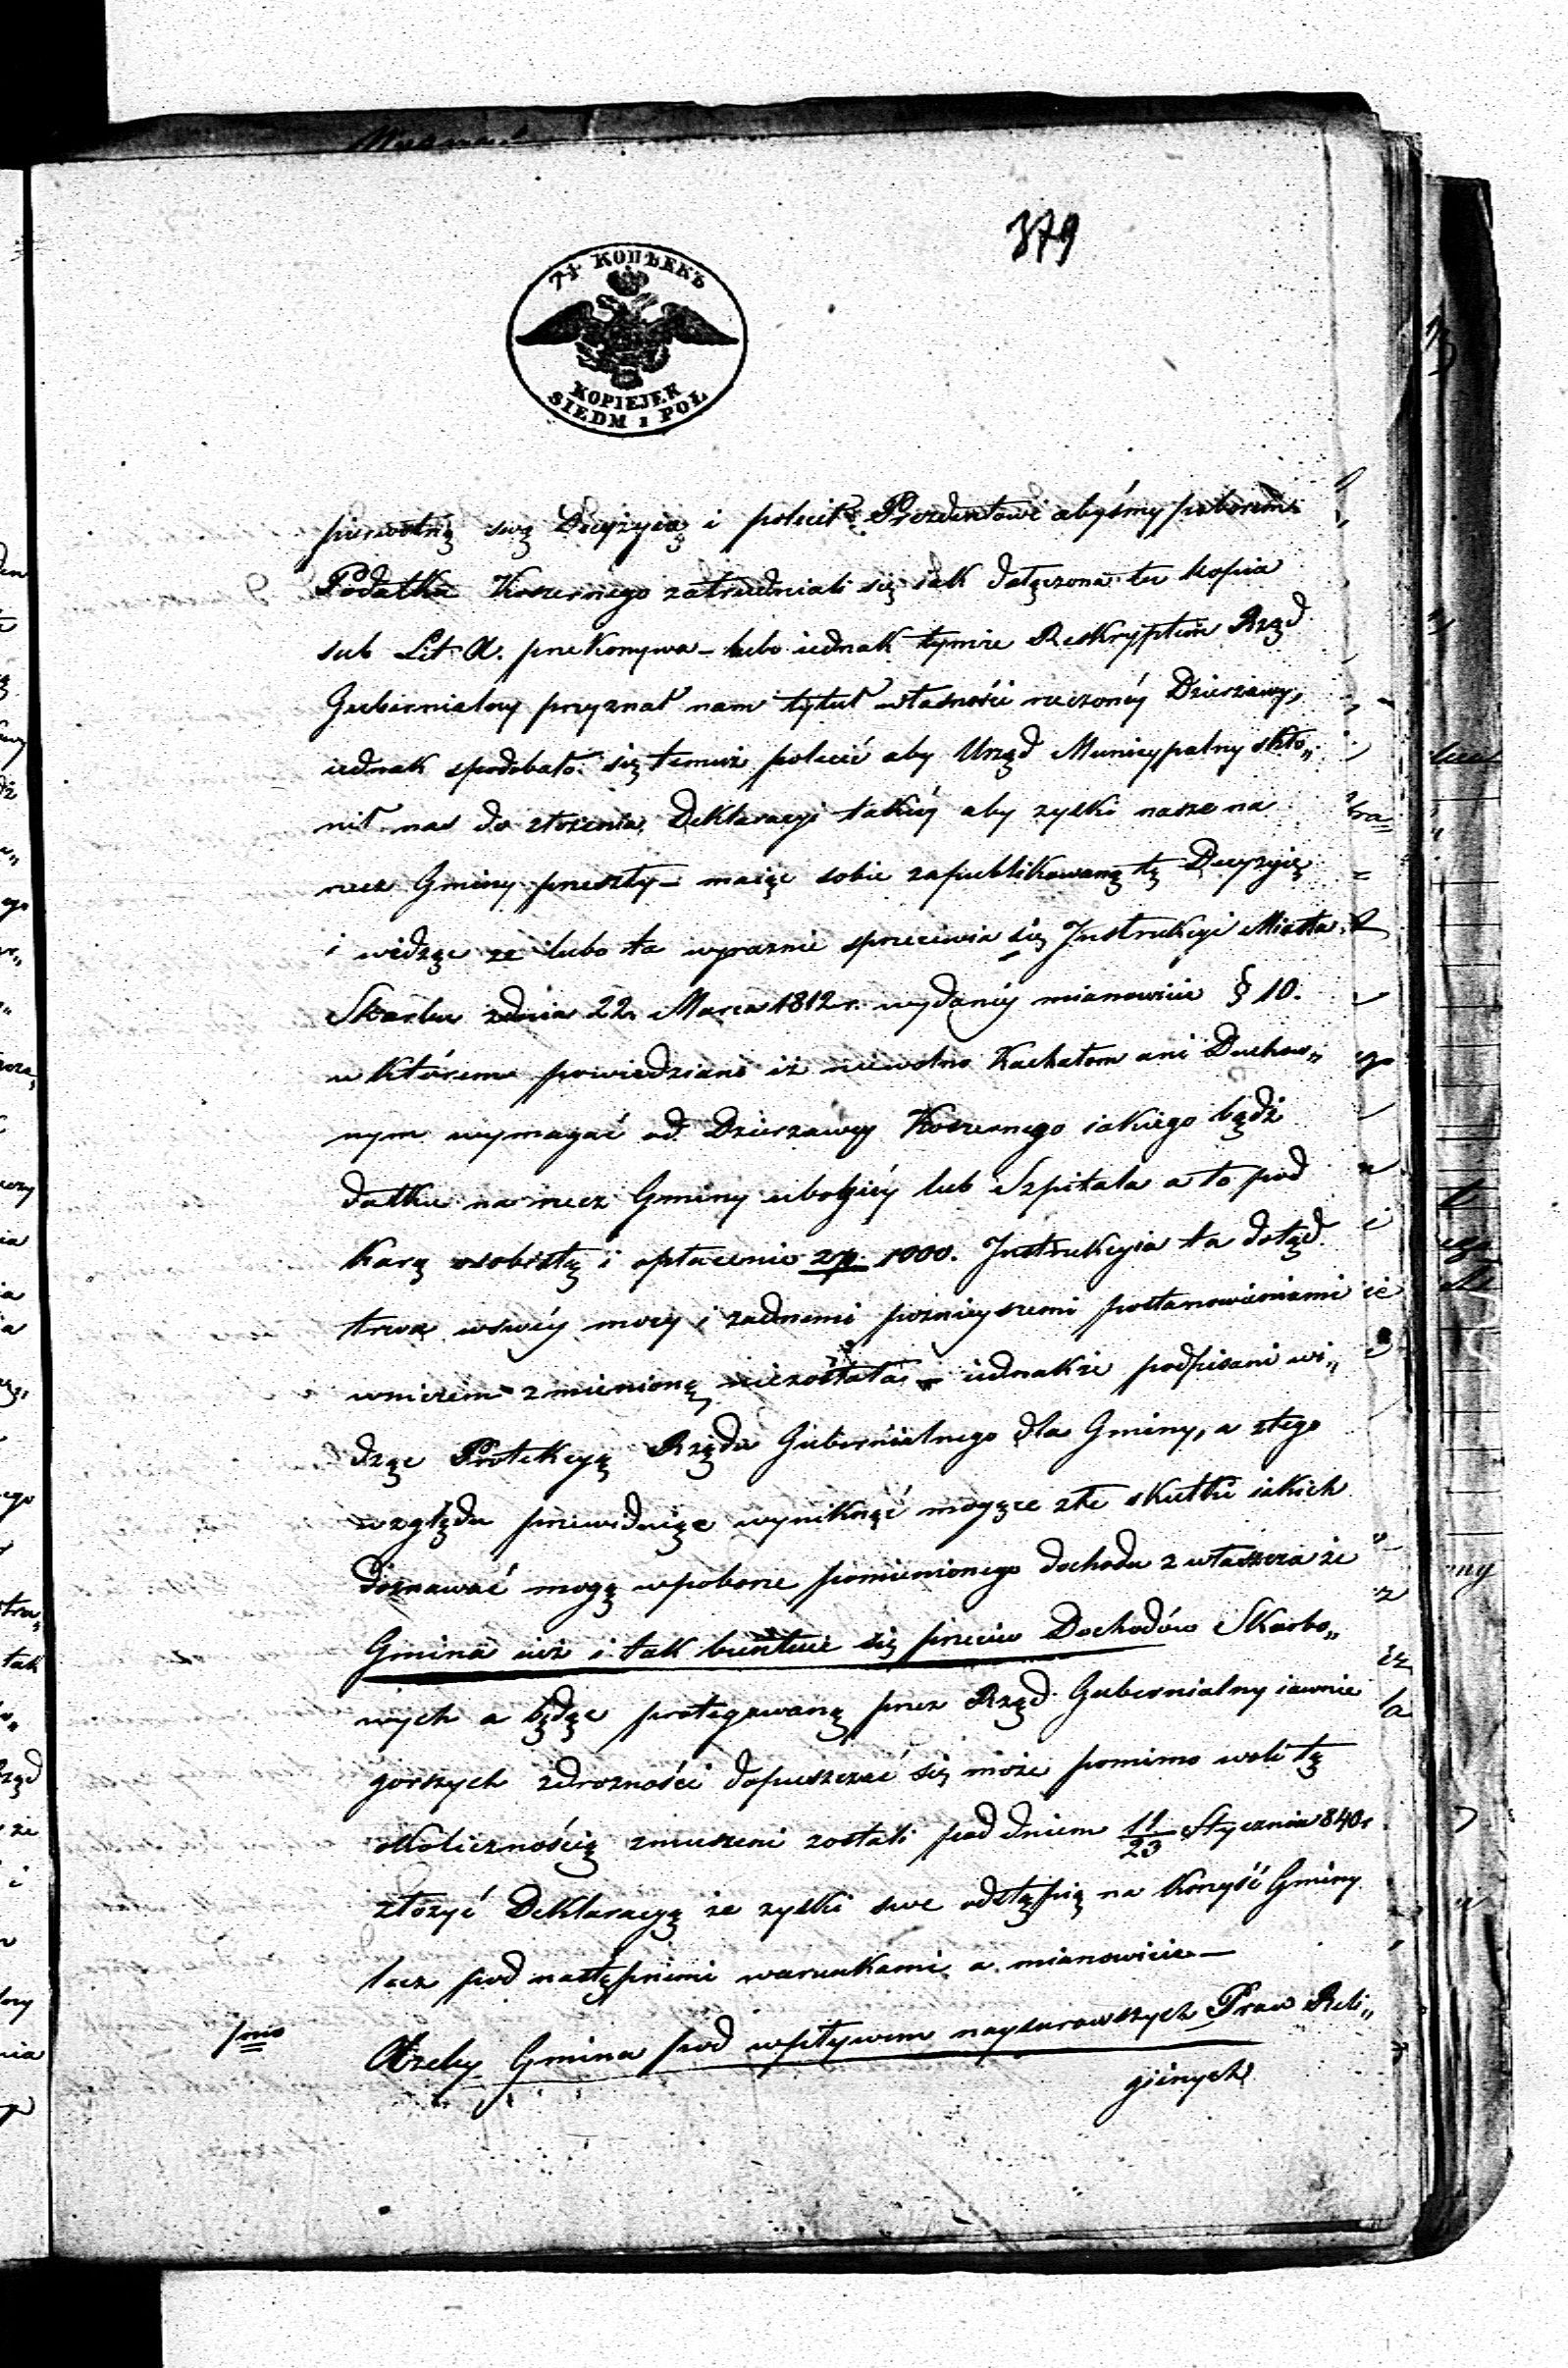 379
7½ КОПѢЕКЪ
KOPIEJEK
SIEDM i POŁ
pierwotną swą Decyzyą i polecił Prezydentowi abyśmy poborem
Podatku Koszernego zatrudniali się jak dołączona tu kopia
sub Lit A. przekonywa – lubo iednak tymże Reskryptem Rząd
Gubernialny przyznał nam tytuł własności rzeczonéy Dzierzawy,
iednak spodobało się temuż polecić aby Urząd Municypalny skło„
nił nas do złożenia Deklaracyi takiéy aby zyski nasze na
rzecz Gminy przeszły – maiąc sobie zapublikowaną tę Decyzyię
i widząc ze lubo ta wyraznie sprzeciwia się Instrukcyi Miasta
Skarbu zdnia 22. Marca 1812 r. wydanéy mianowicie § 10.
w którem powiedziano iż niewolno Kachałom ani Duchow„
nym wymagać od Dzierzawcy Koszernego iakiego bądź
datku na rzecz Gminy ubogiéy lub Szpitala a to pod
karą osobistą i opłacenie złp. 1000. Instrukcyia ta dotąd
trwa wswéy mocy i zadnemi poznieyszemi postanowieniami
wniczem zmienioną niezostała – iednakże podpisani wi„
dząc Protekcyą Rządu Gubernialnego dla Gminy, a ztego
względu przewiduiąc wyniknąć mogące złe skutki iakich
doznawać mogą wpoborze pomienionego dochodu zwłaszcza że
Gmina iuż i tak buntuie się przeciw Dochodów Skarbo„
wych a będąc protegowaną przez Rząd Gubernialny iawnie
gorszych zdrożności dopuszczać się może pomimo woli tą
okolicznością zmuszeni zostali pod dniem 11/23 Stycznia 840 r
złożyć Deklaracyą że zyski swe odstąpią na korzyść Gminy
lecz pod następnemi warunkami a mianowicie –
1mo Ażeby Gmina pod wpływem naysurowszych Praw Reli„
giinych